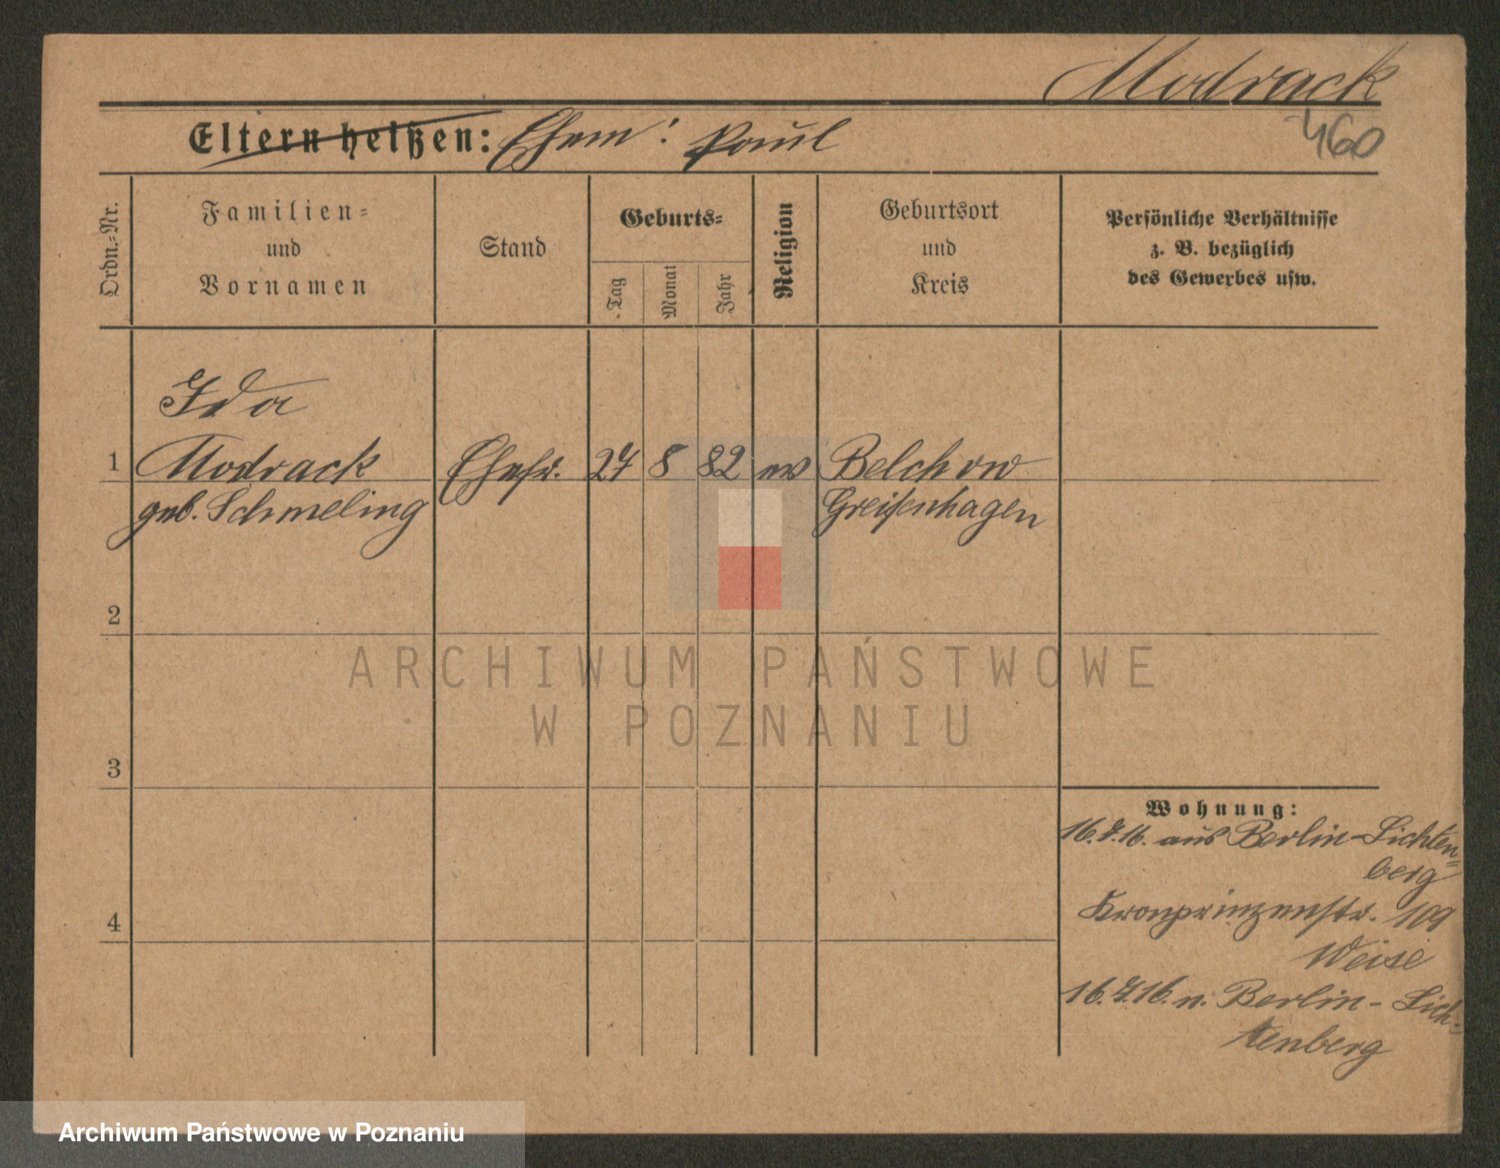 Modrack
460
Eltern heißen: Ehem: Paul
Ordn.-Nr.
Familien-
und
Vornamen
Stand
Geburts-
Tag
Monat
Jahr
Religion
Geburtsort
und
Kreis
Persönliche Verhältnisse
z. B. bezüglich
des Gewerbes usw.
Ida
1 Modrack Ehefr. 27 8 82 ev Belchow
geb. Schmeling Greifenhagen
2
ARCHIWUM PAŃSTWOWE
W POZNANIU
3
Wohnung:
16.7.16. aus Berlin-Lichten-
berg
Kronprinzenstr. 109
4
Weise
16.7.16. n. Berlin-Lich-
tenberg
Archiwum Państwowe w Poznaniu